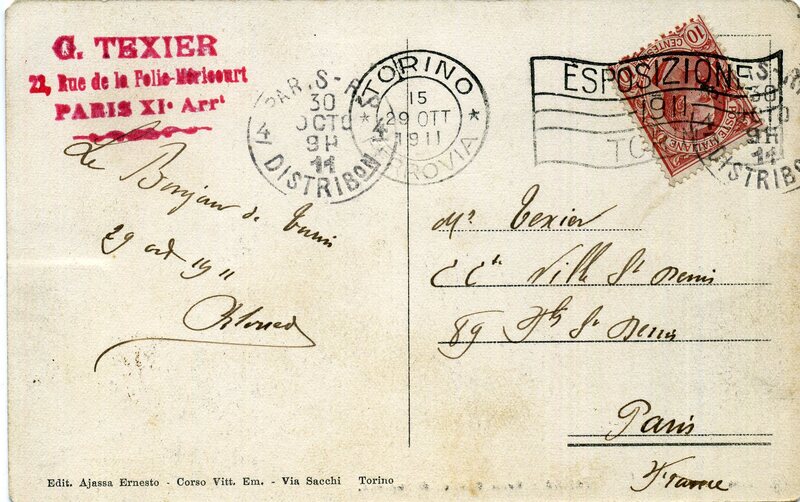 G. TEXIER
22, Rue de la Folie-Méricourt
PARIS XIᵉ Arrᵗ
PARIS-R.P
30
OCTO
9H
11
DISTRIBON
4
4
TORINO
15
29 OTT
1911
FERROVIA
ESPOSIZIONE
1911
TO
10
CENTES
POSTE ITALIANE
30
9H
11
DISTRIB
Le Bonjour de Turin
29 oct 1911
Mr Texier
Ville St Denis
89 Fg St Denis
Paris
France
Edit. Ajassa Ernesto - Corso Vitt. Em. - Via Sacchi Torino